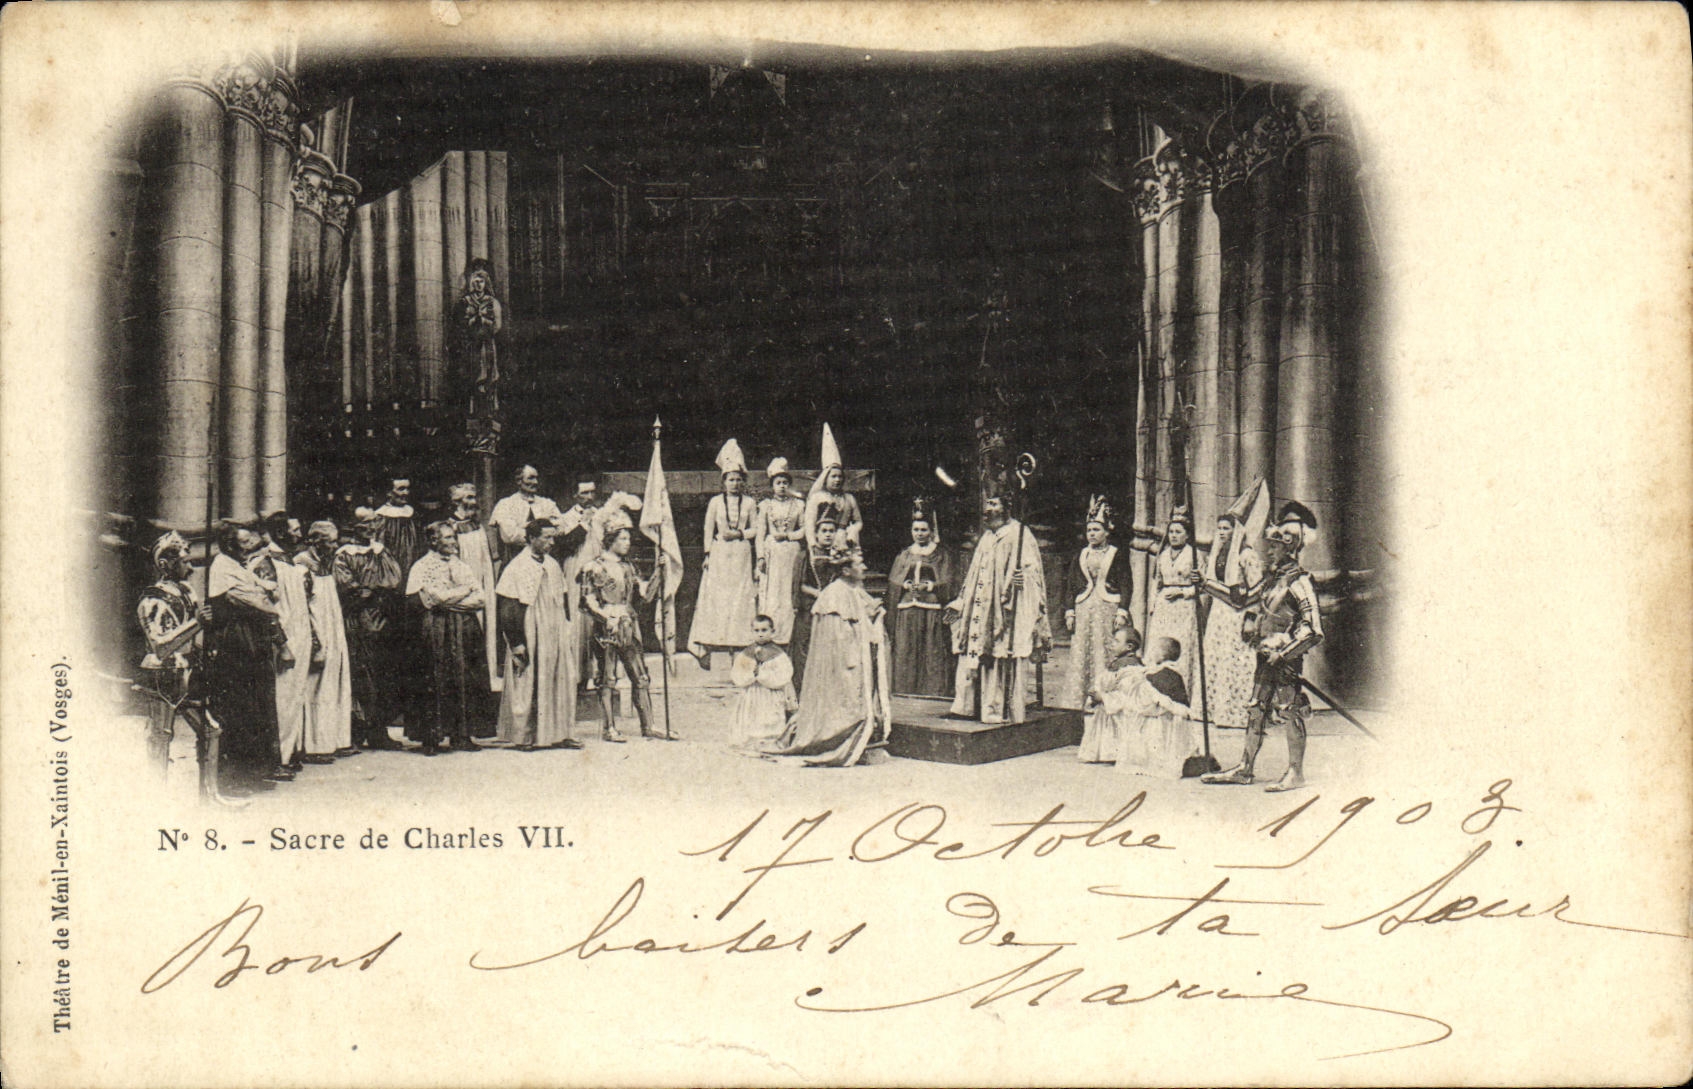 Nº 8. - Sacre de Charles VII.
17 Octobre 1903.
Bons baisers de ta Sœur
Marie
Théâtre de Ménil-en-Xaintois (Vosges).